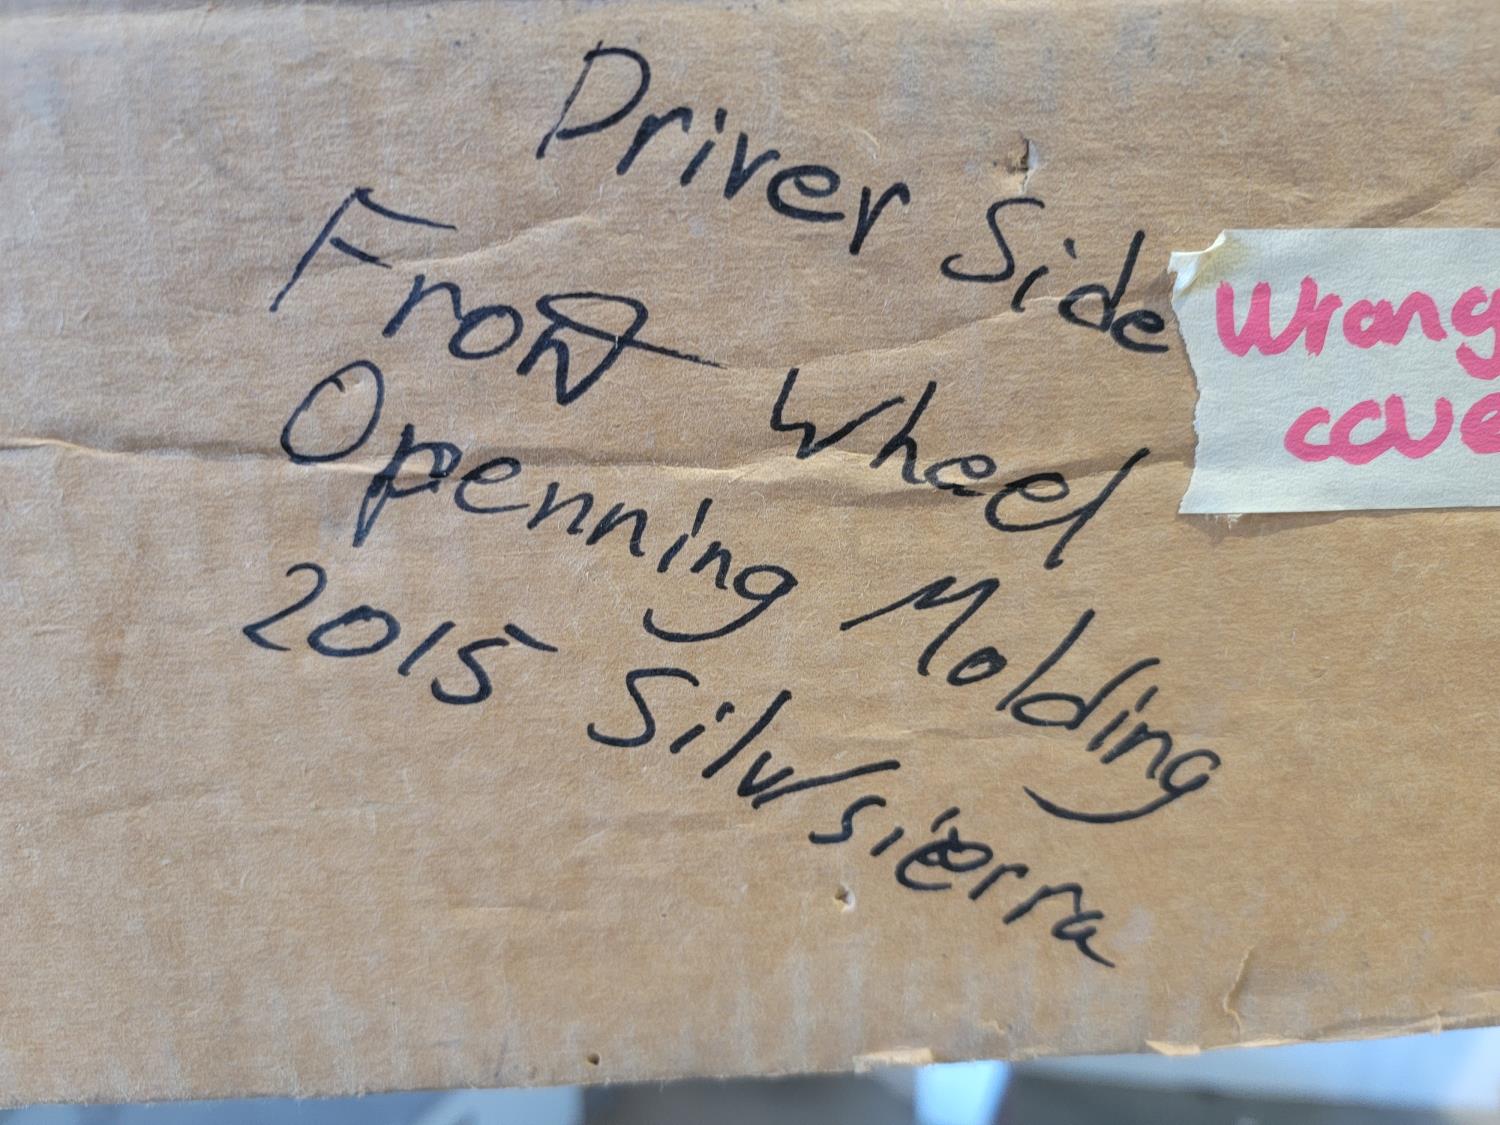 Driver Side
Front Wheel
Openning Molding
2015 Silv/sierra
Wrang
cove